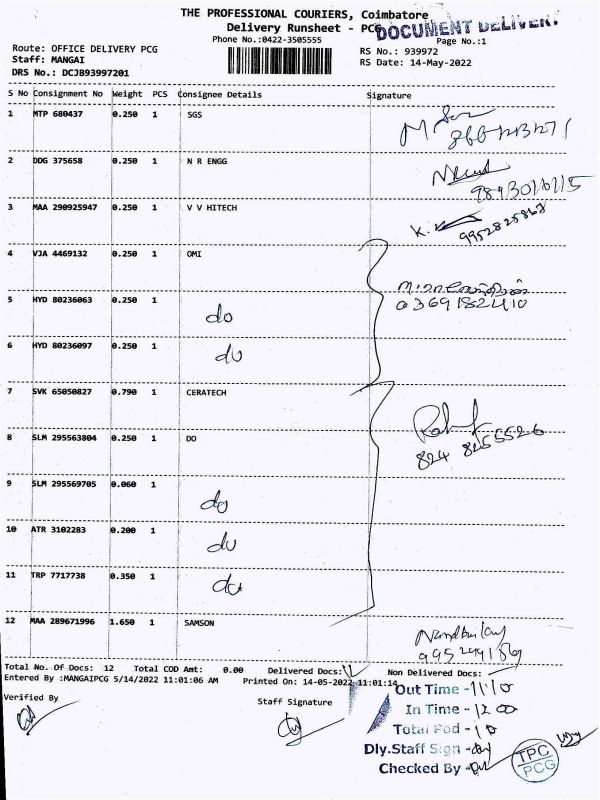 THE PROFESSIONAL COURIERS, Coimbatore
Delivery Runsheet - PCG
DOCUMENT DELIVERY
Phone No.:0422-3505555
Page No.:1
Route: OFFICE DELIVERY PCG
RS No.: 939972
Staff: MANGAI
RS Date: 14-May-2022
DRS No.: DCJB93997201
S No Consignment No Weight PCS Consignee Details Signature
1 MTP 680437 0.250 1 SGS
2 DDG 375658 0.250 1 N R ENGG
3 MAA 290925947 0.250 1 V V HITECH
K.
9952825867
4 VJA 4469132 0.250 1 OMI
5 HYD 80236063 0.250 1 do
6 HYD 80236097 0.250 1 do
7 SVK 65050827 0.790 1 CERATECH
8 SLM 295563804 0.250 1 DO
824 8255526
9 SLM 295569705 0.060 1 do
10 ATR 3102283 0.200 1 do
11 TRP 7717738 0.350 1 do
12 MAA 289671996 1.650 1 SAMSON
Total No. Of Docs: 12 Total COD Amt: 0.00 Delivered Docs: Non Delivered Docs:
Entered By :MANGAIPCG 5/14/2022 11:01:06 AM Printed On: 14-05-2022-11:01:14
Verified By
Staff Signature
Out Time - 11/10
In Time - 12 00
Total Pod -
Dly.Staff Sign -
Checked By -
TPC
PCG